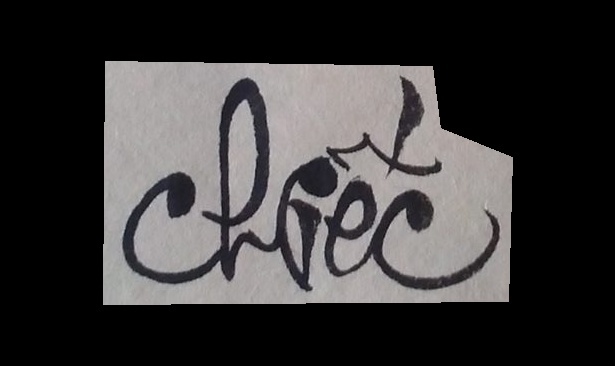 chiếc